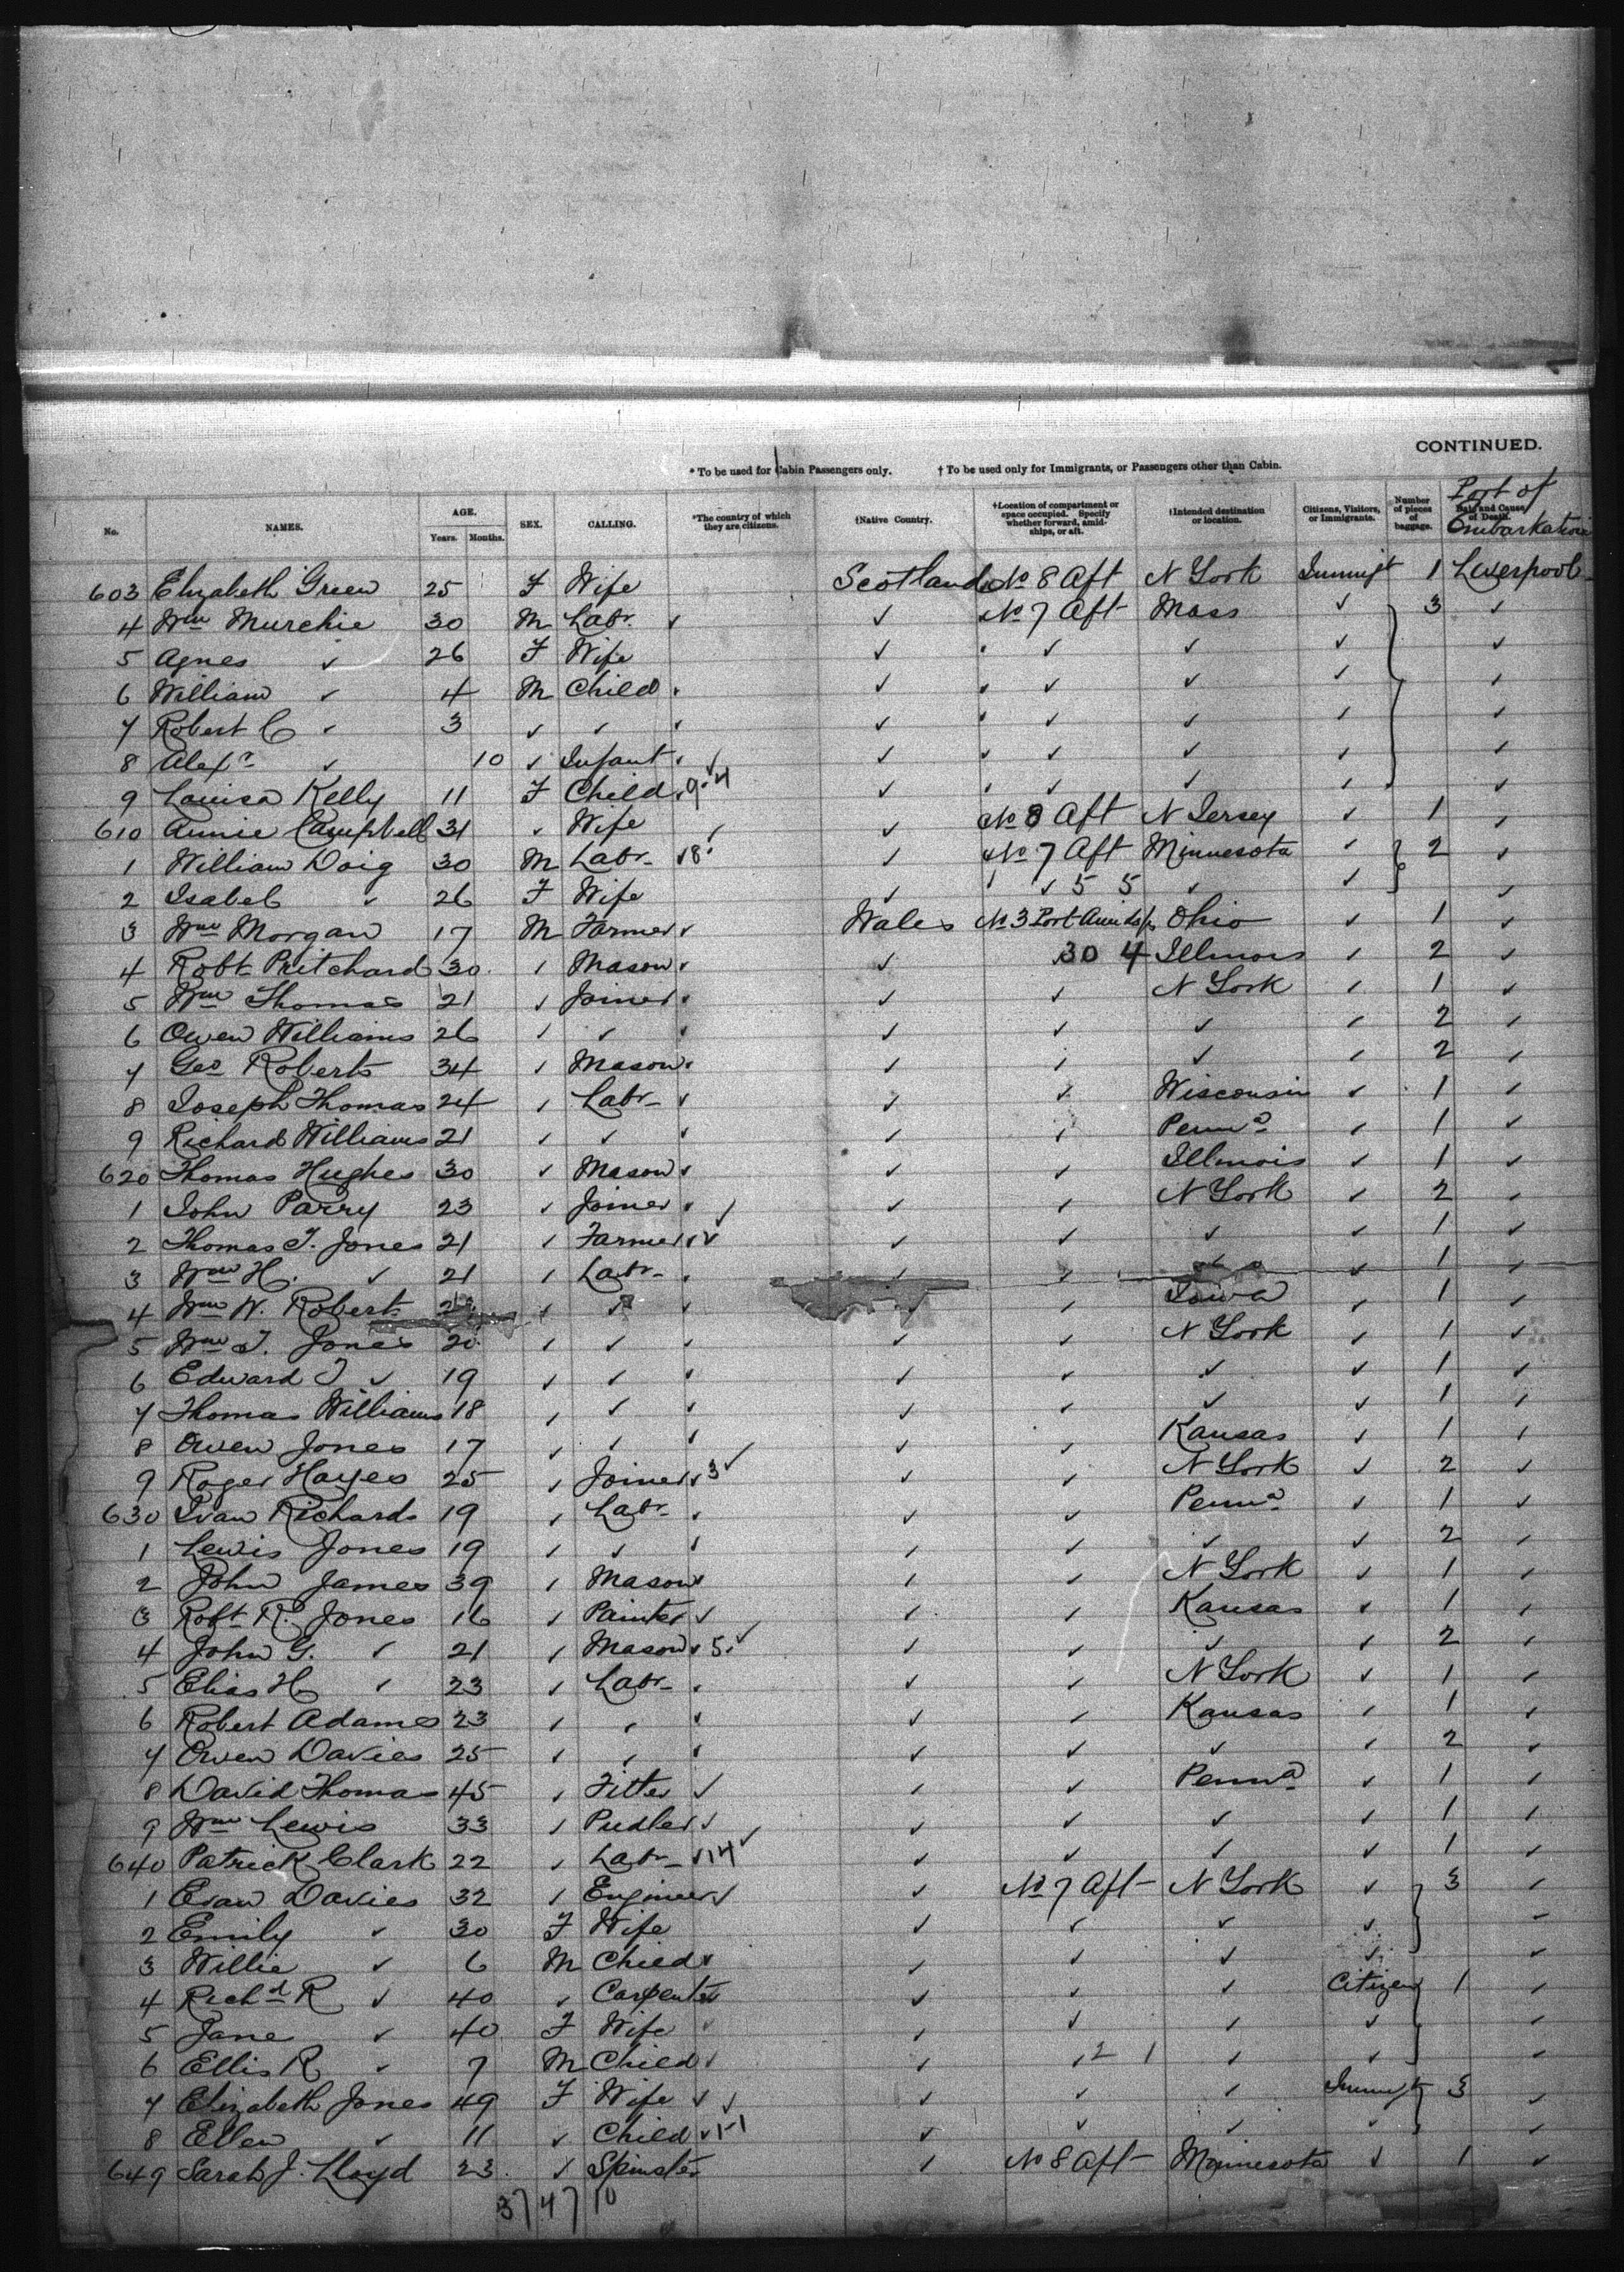 CONTINUED.
* To be used for Cabin Passengers only. † To be used only for Immigrants, or Passengers other than Cabin.
No. NAMES. AGE. Years. Months. SEX. CALLING. *The country of which they are citizens. †Native Country. †Location of compartment or space occupied. Specify whether forward, amidships, or aft. †Intended destination or location. Citizens, Visitors, or Immigrants. Number of pieces of baggage. Date and Cause of Death. Port of Embarkation
603 Elizabeth Green 25 F Wife Scotland No 8 Aft N York Immigt 1 Liverpool
4 Wm Murchie 30 M Labr ✓ ✓ No 7 Aft Mass ✓ 3 ✓
5 Agnes ✓ 26 F Wife ✓ ✓ ✓ ✓ ✓
6 William ✓ 4 M Child ✓ ✓ ✓ ✓ ✓
7 Robert C ✓ 3 ✓ ✓ ✓ ✓ ✓ ✓ ✓
8 Alexr ✓ 10 ✓ Infant ✓ ✓ ✓ ✓ ✓ ✓
9 Louisa Kelly 11 F Child 9-4 ✓ ✓ ✓ ✓ ✓
610 Annie Campbell 31 ✓ Wife ✓ ✓ No 8 Aft N Jersey ✓ 1 ✓
1 William Doig 30 M Labr ✓ 8 ✓ No 7 Aft Minnesota ✓ 2 ✓
2 Isabel ✓ 26 F Wife ✓ ✓ 5 5 ✓ ✓ ✓
3 Wm Morgan 17 M Farmer ✓ Wales No 3 Port Amidsps Ohio ✓ 1 ✓
4 Robt Pritchard 30 ✓ Mason ✓ ✓ 30 4 Illinois ✓ 2 ✓
5 Wm Thomas 21 ✓ Joiner ✓ ✓ ✓ N York ✓ 1 ✓
6 Owen Williams 26 ✓ ✓ ✓ ✓ ✓ ✓ ✓ 2 ✓
7 Geo Roberts 34 ✓ Mason ✓ ✓ ✓ ✓ ✓ 2 ✓
8 Joseph Thomas 24 ✓ Labr ✓ ✓ ✓ Wisconsin ✓ 1 ✓
9 Richard Williams 21 ✓ ✓ ✓ ✓ ✓ Penna ✓ 1 ✓
620 Thomas Hughes 30 ✓ Mason ✓ ✓ ✓ Illinois ✓ 1 ✓
1 John Parry 23 ✓ Joiner ✓ ✓ ✓ ✓ N York ✓ 2 ✓
2 Thomas T. Jones 21 ✓ Farmer ✓ ✓ ✓ ✓ ✓ ✓ 1 ✓
3 Wm H. ✓ 21 ✓ Labr ✓ ✓ ✓ ✓ ✓ 1 ✓
4 Wm W. Roberts ✓ ✓ ✓ ✓ ✓ Iowa ✓ 1 ✓
5 Wm T. Jones 20 ✓ ✓ ✓ ✓ ✓ N York ✓ 1 ✓
6 Edward J ✓ 19 ✓ ✓ ✓ ✓ ✓ ✓ ✓ 1 ✓
7 Thomas Williams 18 ✓ ✓ ✓ ✓ ✓ ✓ ✓ 1 ✓
8 Owen Jones 17 ✓ ✓ ✓ ✓ ✓ Kansas ✓ 1 ✓
9 Roger Hayes 25 ✓ Joiner ✓ 3 ✓ ✓ ✓ N York ✓ 2 ✓
630 Evan Richards 19 ✓ Labr ✓ ✓ ✓ Penna ✓ 1 ✓
1 Lewis Jones 19 ✓ ✓ ✓ ✓ ✓ ✓ ✓ 2 ✓
2 John James 39 ✓ Mason ✓ ✓ ✓ N York ✓ 1 ✓
3 Robt R. Jones 16 ✓ Painter ✓ ✓ ✓ Kansas ✓ 1 ✓
4 John G. ✓ 21 ✓ Mason ✓ 5 ✓ ✓ ✓ ✓ ✓ 2 ✓
5 Elias H ✓ 23 ✓ Labr ✓ ✓ ✓ N York ✓ 1 ✓
6 Robert Adams 23 ✓ ✓ ✓ ✓ ✓ Kansas ✓ 1 ✓
7 Owen Davies 25 ✓ ✓ ✓ ✓ ✓ ✓ ✓ 2 ✓
8 David Thomas 45 ✓ Fitter ✓ ✓ ✓ Penna ✓ 1 ✓
9 Wm Lewis 33 ✓ Pudler ✓ ✓ ✓ ✓ ✓ 1 ✓
640 Patrick Clark 22 ✓ Labr ✓ 14 ✓ ✓ ✓ ✓ ✓ 1 ✓
1 Evan Davies 32 ✓ Engineer ✓ ✓ No 7 Aft N York ✓ 3 ✓
2 Emily ✓ 30 F Wife ✓ ✓ ✓ ✓ ✓
3 Willie ✓ 6 M Child ✓ ✓ ✓ ✓ ✓ ✓
4 Richd R ✓ 40 ✓ Carpenter ✓ ✓ ✓ ✓ Citizen 1 ✓
5 Jane ✓ 40 F Wife ✓ ✓ ✓ ✓ ✓ ✓
6 Ellis R ✓ 7 M Child ✓ ✓ ✓ 2 1 ✓ ✓ ✓
7 Elizabeth Jones 49 F Wife ✓ ✓ ✓ ✓ ✓ Immigt 3 ✓
8 Ellen ✓ 11 ✓ Child ✓ 1-1 ✓ ✓ ✓ ✓ ✓
649 Sarah J. Lloyd 23 ✓ Spinster ✓ No 8 Aft Minnesota ✓ 1 ✓
37 47 10